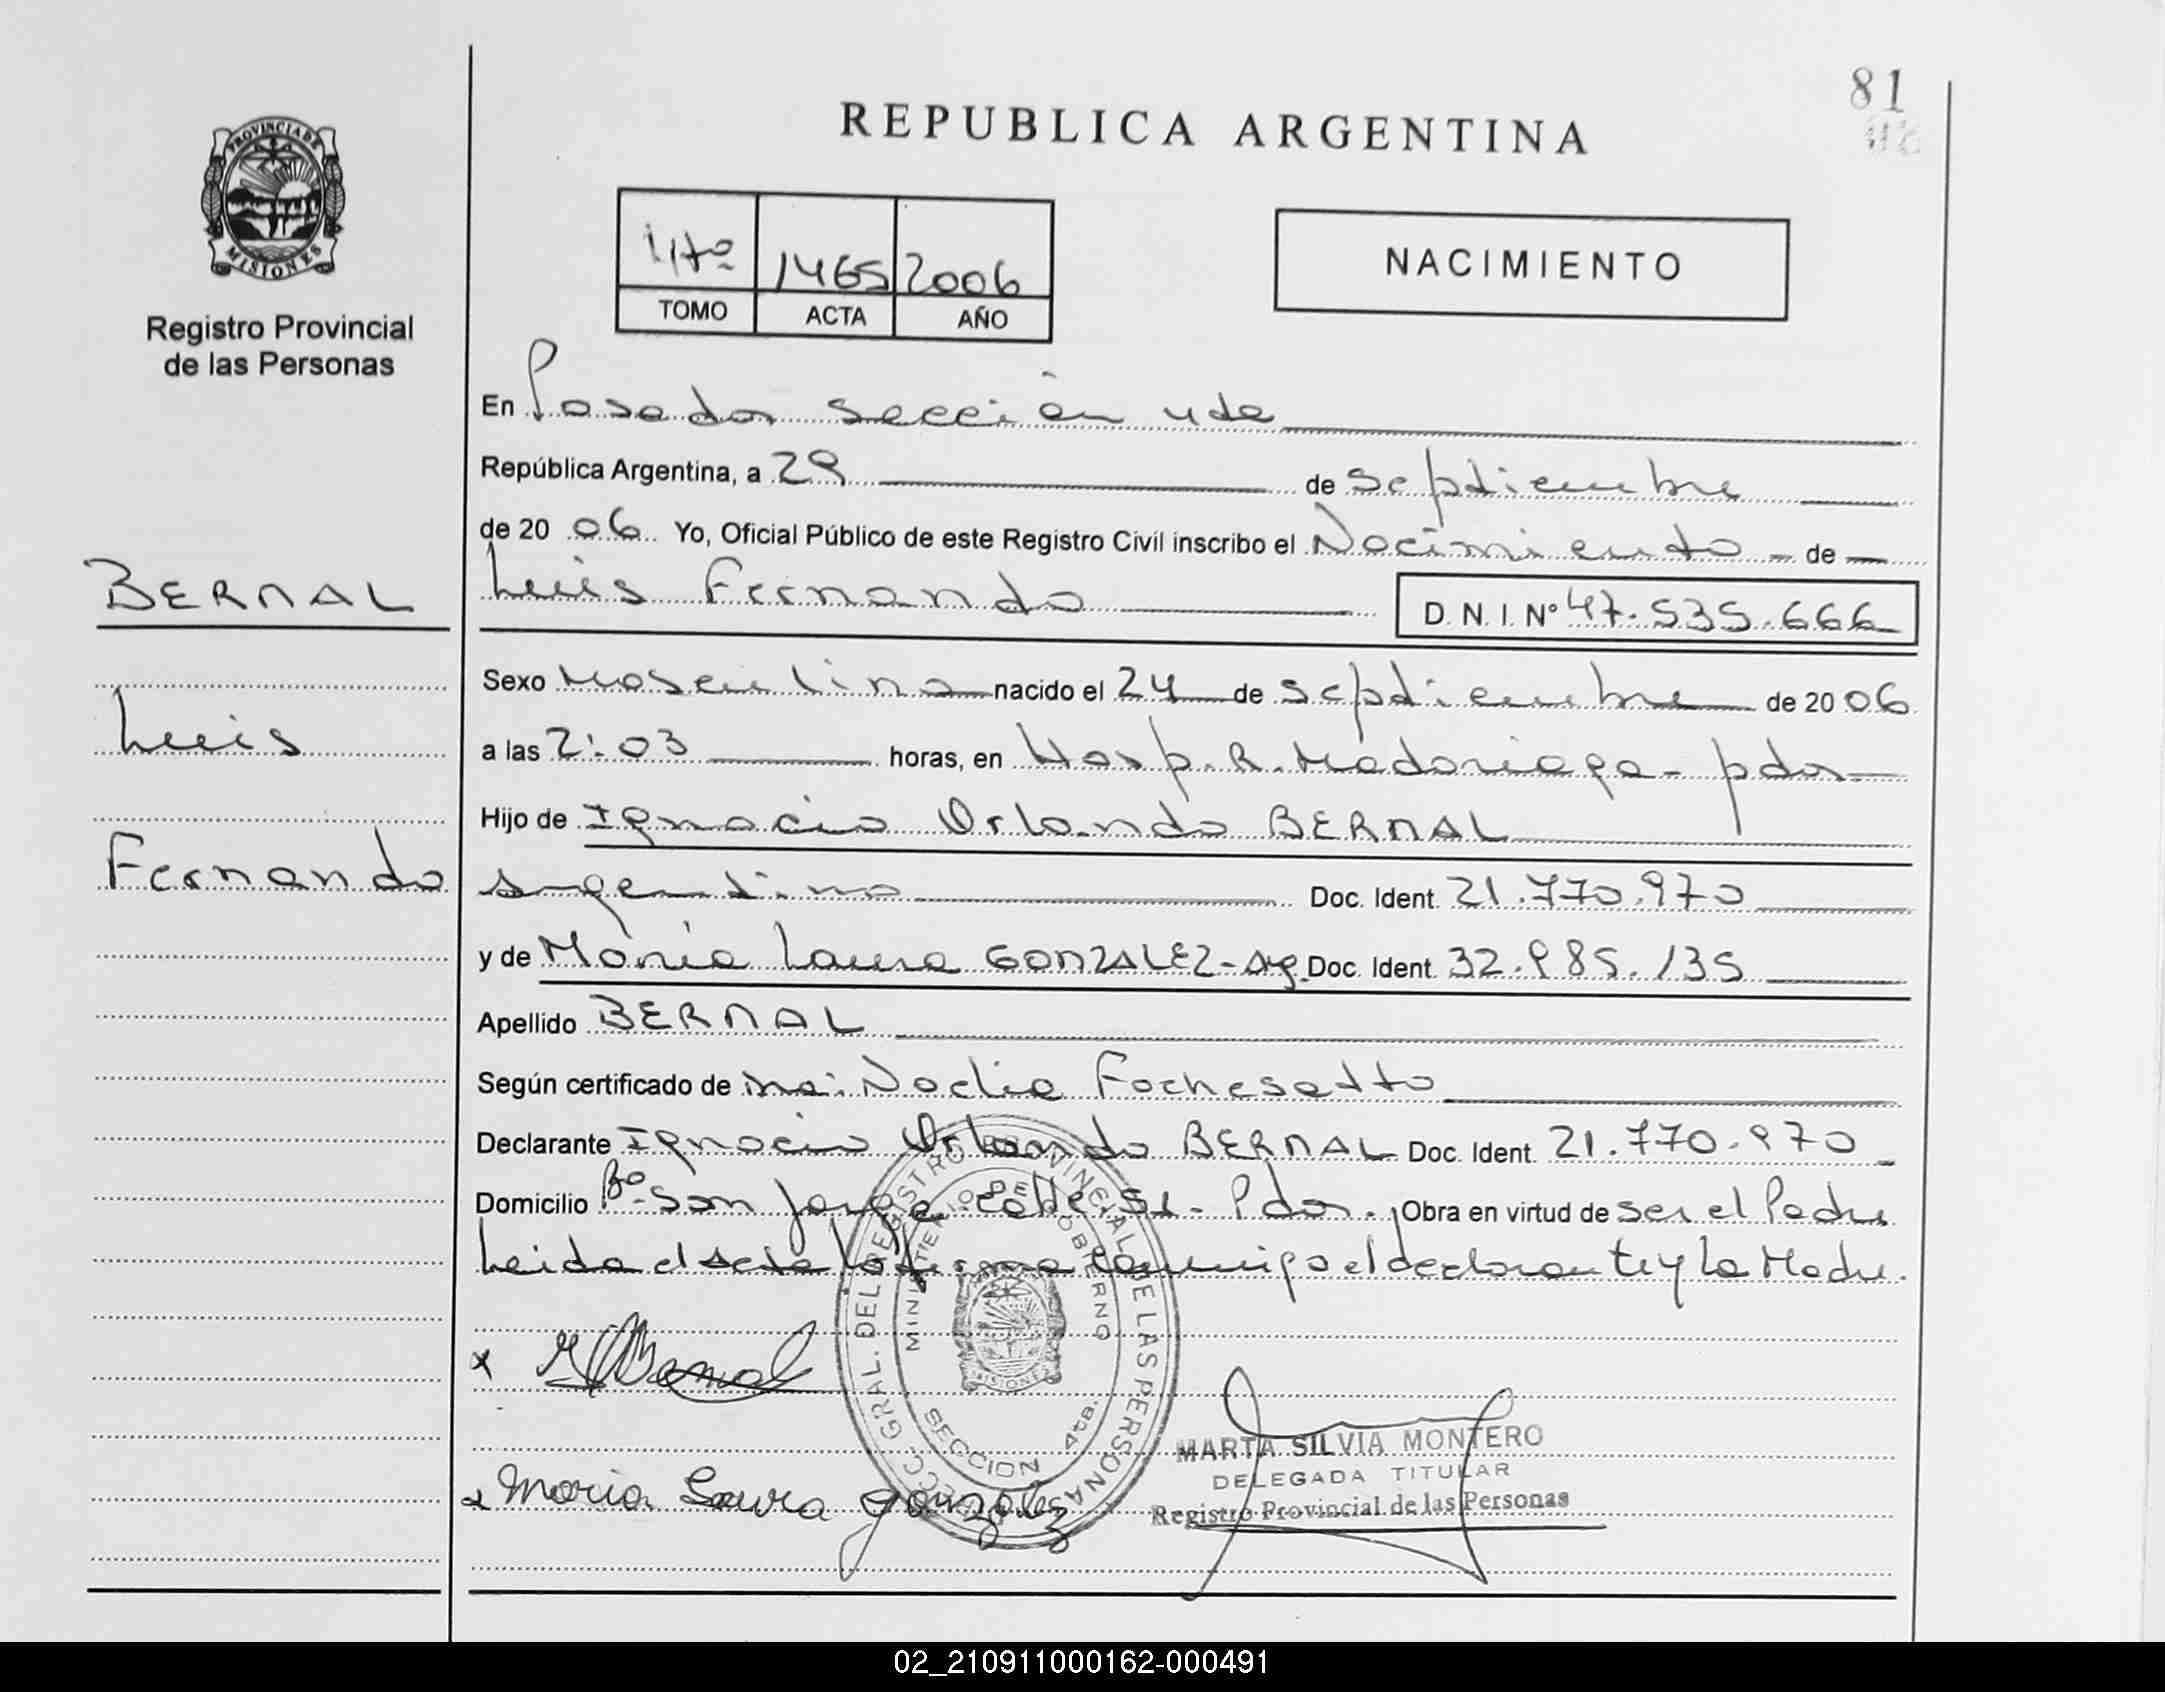 81
REPUBLICA ARGENTINA
PROVINCIA DE
MISIONES
Registro Provincial
de las Personas
1465 2006
TOMO ACTA AÑO
NACIMIENTO
En Posadas sección 4ta
República Argentina, a 29 de septiembre
de 20 06 Yo, Oficial Público de este Registro Civil inscribo el Nacimiento - de
BERNAL
Luis Fernando D. N. I. Nº 47.535.666
Sexo Masculino nacido el 24 de septiembre de 20 06
Luis
a las 2:03 horas, en Hosp. R. Madariaga - pdas
Hijo de Ignacio Orlando BERNAL
Fernando
argentino Doc. Ident. 21.770.970
y de María Laura GONZALEZ - Arg. Doc. Ident. 32.985.135
Apellido BERNAL
Según certificado de Noelia Fochesatto
Declarante Ignacio Orlando BERNAL Doc. Ident. 21.770.970
Domicilio Bº San Jorge Calle 51 - Pdas. Obra en virtud de ser el Padre
Leida el acta la firma conmigo el declarante y la Madre.
DIRECC. GRAL. DEL REGISTRO PROVINCIAL DE LAS PERSONAS
MINISTERIO DE GOBIERNO
MISIONES
SECCION 4ta.
x Bernal
MARTA SILVIA MONTERO
DELEGADA TITULAR
Registro Provincial de las Personas
x Maria Laura gonzalez
02_210911000162-000491